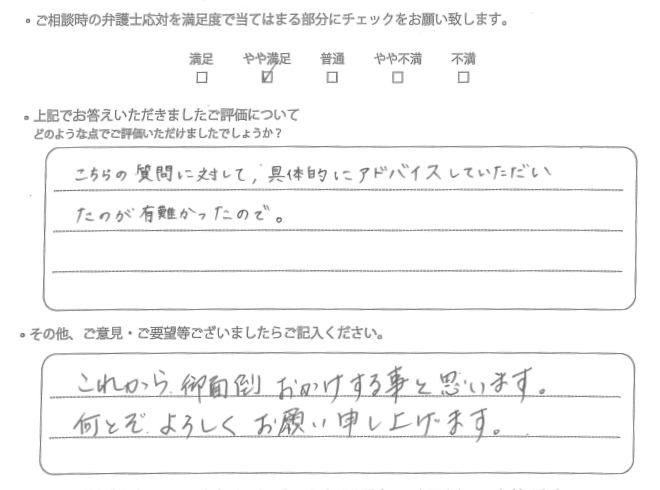 • ご相談時の弁護士応対を満足度で当てはまる部分にチェックをお願い致します。
満足 やや満足 普通 やや不満 不満
□ ☑ □ □ □
• 上記でお答えいただきましたご評価について
どのような点でご評価いただけましたでしょうか？
こちらの質問に対して、具体的にアドバイスしていただい
たのが有難かったので。
• その他、ご意見・ご要望等ございましたらご記入ください。
これから、御面倒おかけする事と思います。
何とぞよろしくお願い申し上げます。